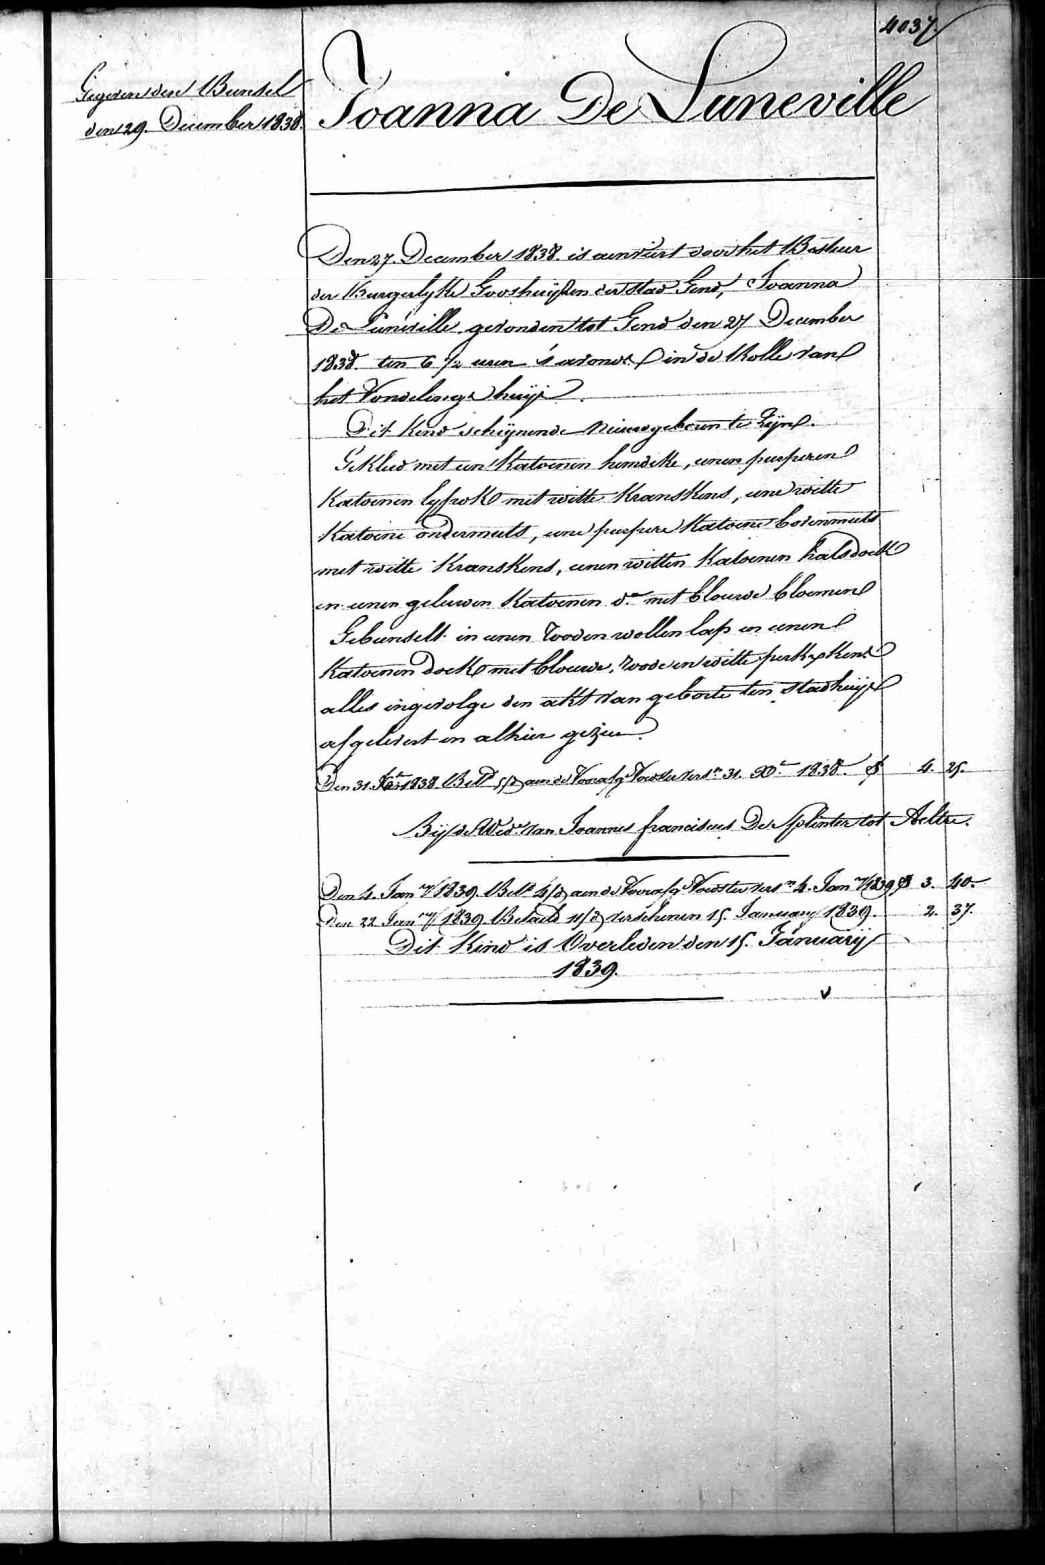 4037.
Gegeven den Bunsel
den 29. December 1838.
Joanna De Luneville
Den 27. December 1838. is aenveirt door het Bestuer
der Burgerlyke Godshuijsen der stad Gend, Joanna
De Luneville gevonden tot Gend den 27 December
1838. ten 6 1/2 uren 's avonds in de Rolle van
het Vondelings huijs.
Dit Kind schijnende nieuwgeboren te zijn.
Gekleed met een Katoenen hemdeke, eenen purperen
Katoenen lyfrok met witte Kranskens, eene witte
Katoene ondermuts, eene purpere Katoene bovenmuts
met witte Kranskens, eenen witten Katoenen halsdoek
en eenen geluwen Katoenen do met blouwe bloemen
Gebunselt in eenen rooden wollen lap en eenen
Katoenen doek met blouwe, roode en witte perkskens
alles ingevolge den akt van geborte ten stadhuijse
afgelevert en alhier gezien.
Den 31. 1838. Betd aen de Voorafg Voedster 31. Xbr 1838. 4. 25.
Bij de Wede van Joannes franciscus De Splinter tot Aeltre.
Den 4. Jany 1839. Betd aen de Voorafg Voedster 4. Jany 1839 3. 40.
Den 22 Jany 1839 Betaeld verschenen 15. January 1839. 2. 37.
Dit Kind is Overleden den 15. Januarij
1839.